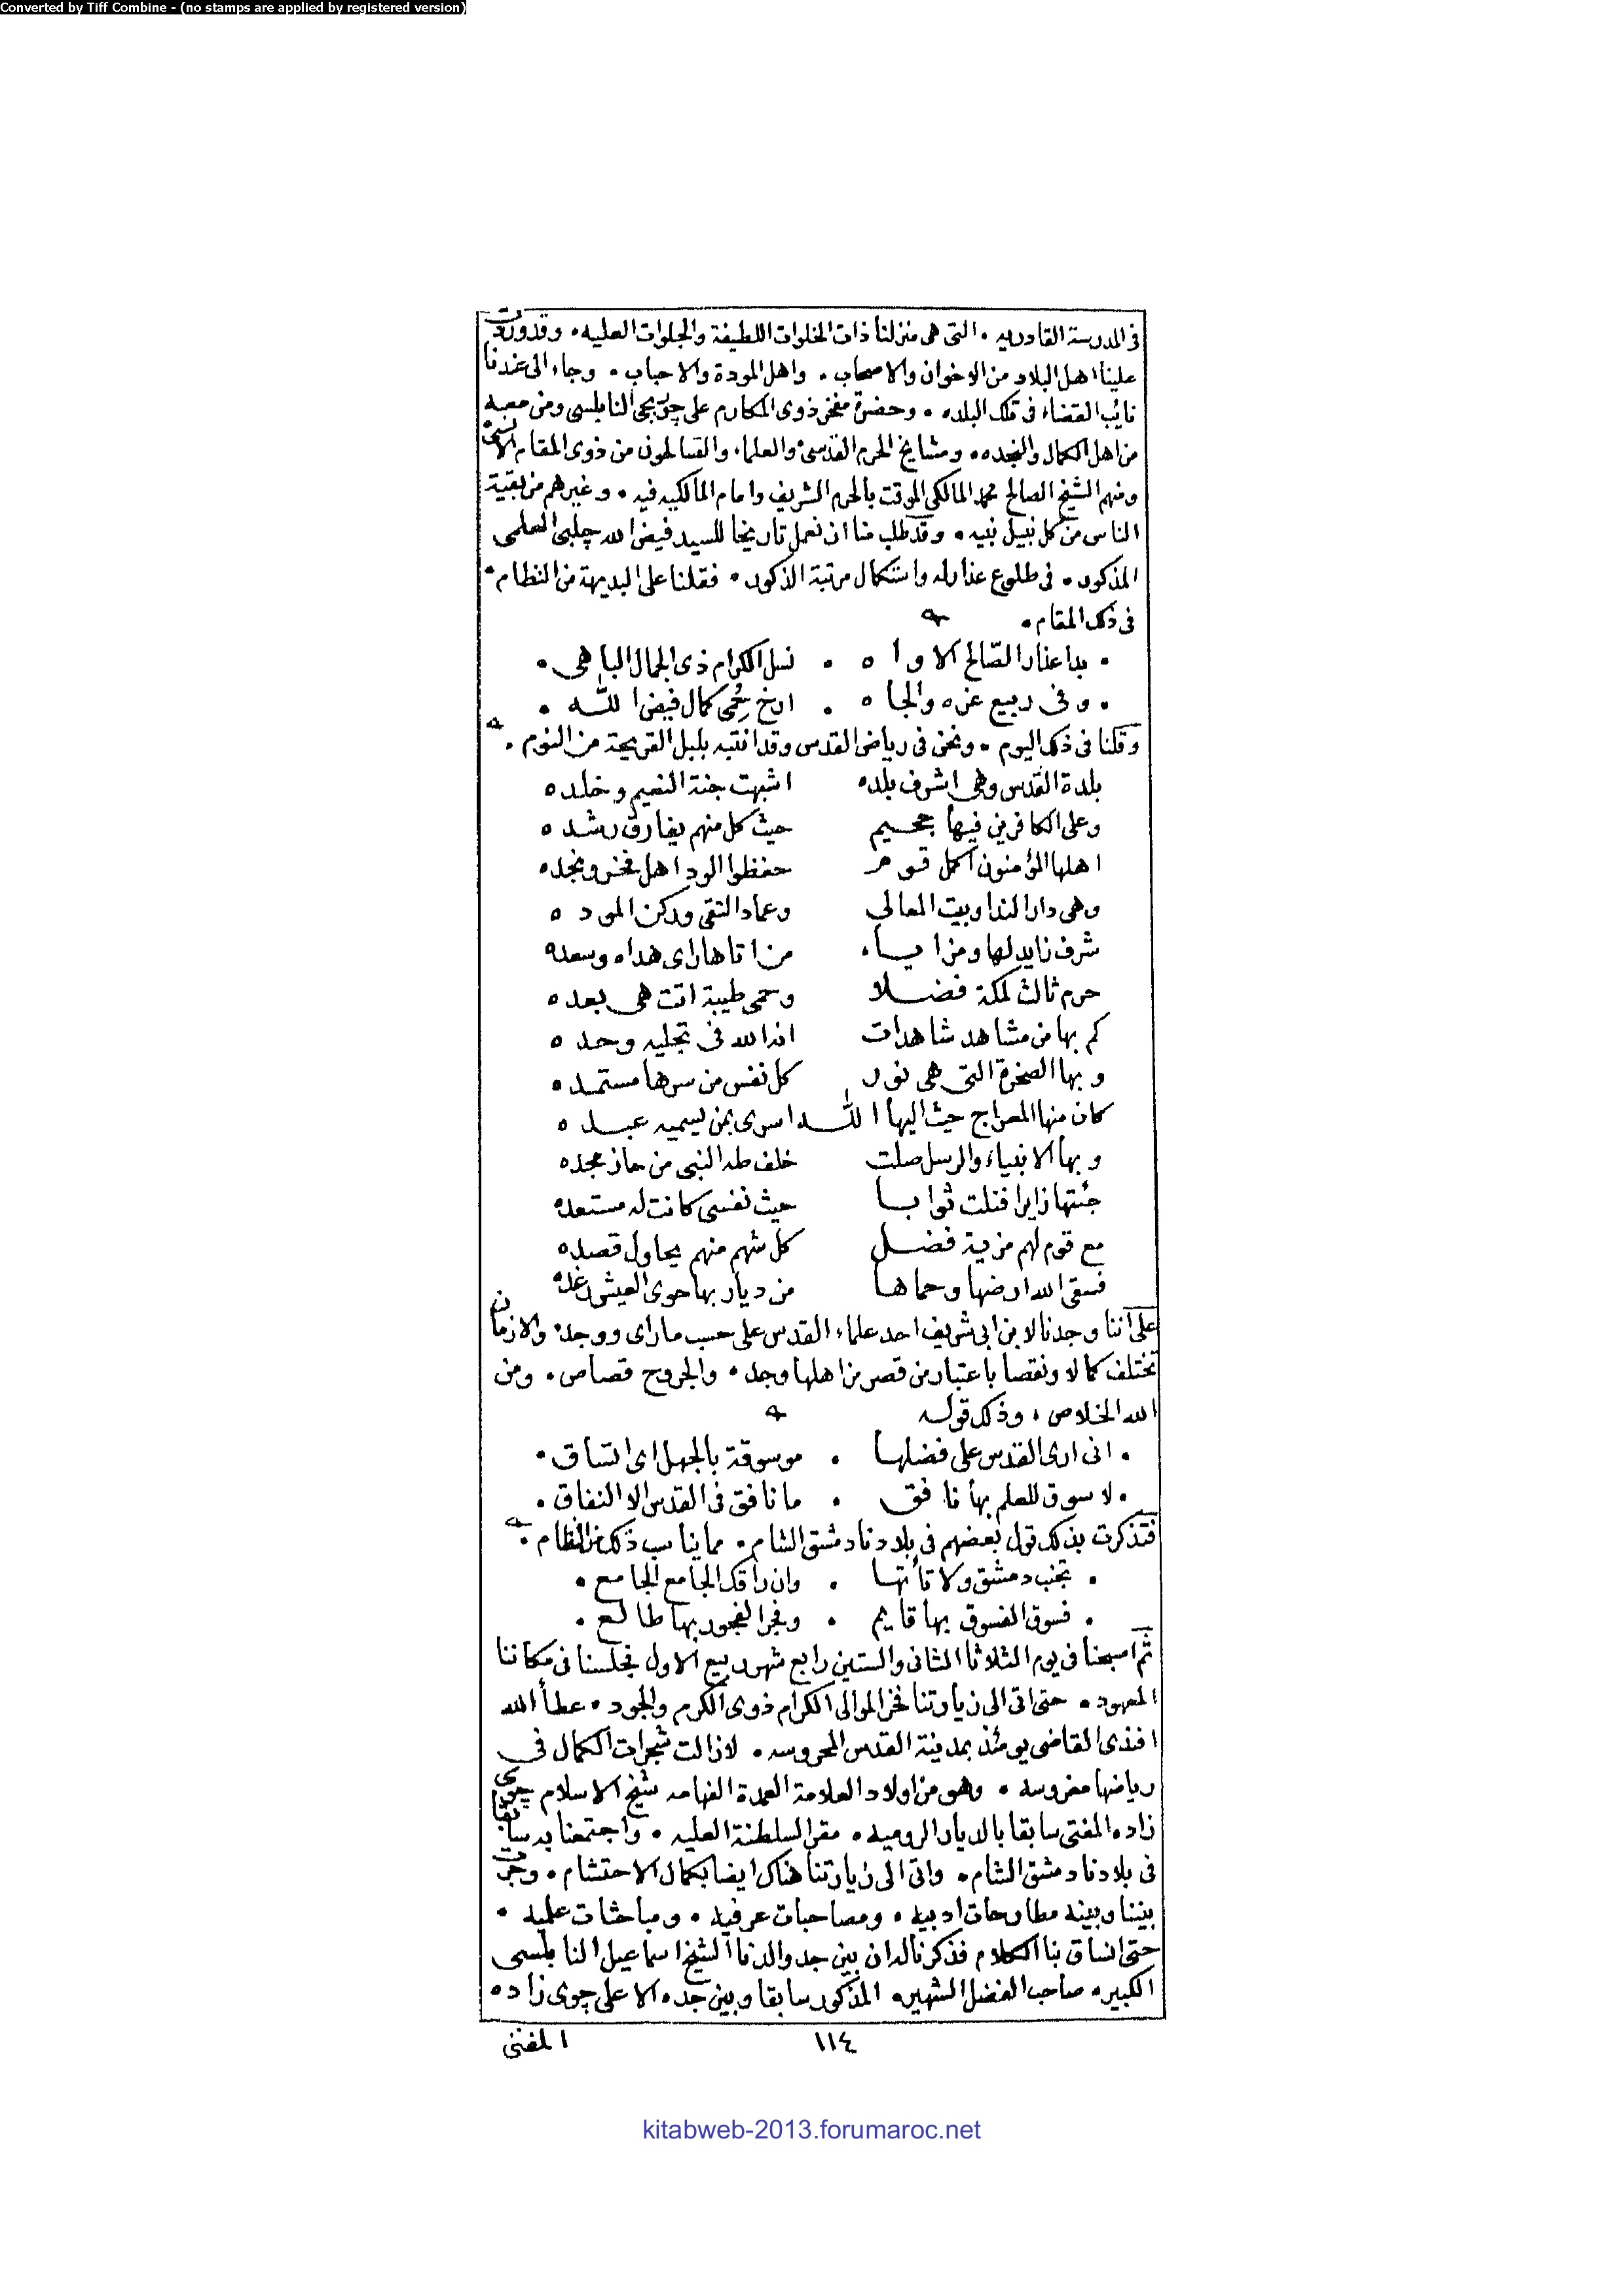 Converted by Tiff Combine - (no stamps are applied by registered version)
في المدرسة القادريه • التى هى منزلنا ذات الخلوات اللطيفة والجلوات العليه • وقد وردت
علينا اهل البلاد من الاخوان والاصحاب • واهل المودة والاحباب • وجاء الى عندنا
نائب القضاء فى تلك البلده • وحضرة مفخر ذوى المكارم على چوربجى النابلسى ومن معه
من اهل الكمال والنجده • ومشايخ الحرم القدسى والعلماء والقسالمون من ذوى المقام الاسنى
ومنهم الشيخ الصالح محمد المالكى الموقت بالحرم الشريف وامام المالكيه فيه • وغيرهم من بقية
الناس من كل نبيل نبيه • وقد طلب منا ان نعمل تاريخا للسيد فيض الله چلبى العلمى
المذكور • فى طلوع عذاره واستكمال مرتبة الذكور • فقلنا على البديهة من النظام •
فى ذلك المقام •
• بدا عذار الصّالح الاواه • نسل الكرام ذى الجمال الباهى •
• وفى ربيع عزه والجاه • ارخ كمال فيض الله •
وقلنا فى ذلك اليوم • ونحن فى رياض القدس وقد انتبه بلبل القريحة من النوم •
بلدة القدس وهى اشرف بلده اشبهت جنة النعيم وخلده
وعلى الكافرين فيها جحيم حيث كل منهم يفارق رشده
اهلها المؤمنون اكمل قوم حفظوا الود اهل فخر ونجده
وهى دار الندا وبيت المعالى وعماد التقى وركن الموده
شرف زايد لها ومزاياء من اتاها راى هداه وسعده
حرم ثالث لمكة فضلا وحمى طيبة اتت هى بعده
كم بها من مشاهد شاهدات ان الله فى تجليه وحده
وبها الصخرة التى هى نور كل نفس من سرها مستمده
كان منها المعراج حيث اليها الله اسرى بمن يسميه عبده
وبها الانبياء والرسل صلت خلف طه النبى من حاز مجده
جئتها زايرا فنلت ثوابا حيث نفسى كانت له مستعده
مع قوم لهم مزية فضل كل شهم منهم يحاول قصده
فسقى الله ارضها وحماها من ديار بها حوى العيش رغده
على اننا وجدنا لابن ابى شريف احد علماء القدس على حسب ما راى ووجد • والازمان
تختلف كمالا ونقصا باعتبار من قصر من اهلها وجد • والجروح قصاص • ومن
الله الخلاص • وذلك قوله
• انى ارى القدس على فضلها • موسوقة بالجهل اى اتساق •
• لا سوق للعلم بها نافق • ما نافق فى القدس الا النفاق •
فتذكرت بذلك قول بعضهم فى بلادنا دمشق الشام • مما يناسب ذلك من النظام •
• تجنب دمشق ولا تأتها • وان راقك الجامع الجامع •
• فسوق الفسوق بها قايم • وفجر الفجور بها طالع •
ثم اصبحنا فى يوم الثلاثا الثانى والستين رابع شهر ربيع الاول فجلسنا فى مكاننا
المعهود • حتى اتى الى زيارتنا فخر الموالى الكرام ذوى الكرم والجود • عطاء الله
افندى القاضى يومئذ بمدينة القدس المحروسه • لا زالت شجرات الكمال فى
رياضها مغروسه • وهو من اولاد العلامة العمدة الفهامه شيخ الاسلام چوى
زاده المفتى سابقا بالديار الروميه • مقر السلطنة العليه • واجتمعنا به سابقا
فى بلادنا دمشق الشام • واتى الى زيارتنا هناك ايضا بكمال الاحتشام • وجرت
بيننا وبينه مطارحات ادبيه • ومصاحبات عرفيه • ومباحثات علميه •
حتى انساق بنا الكلام فذكرنا له ان بين جد والدنا الشيخ اسماعيل النابلسى
الكبير • صاحب الفضل الشهير • المذكور سابقا وبين جده الاعلى چوى زاده
١١٤
المفتى
kitabweb-2013.forumaroc.net